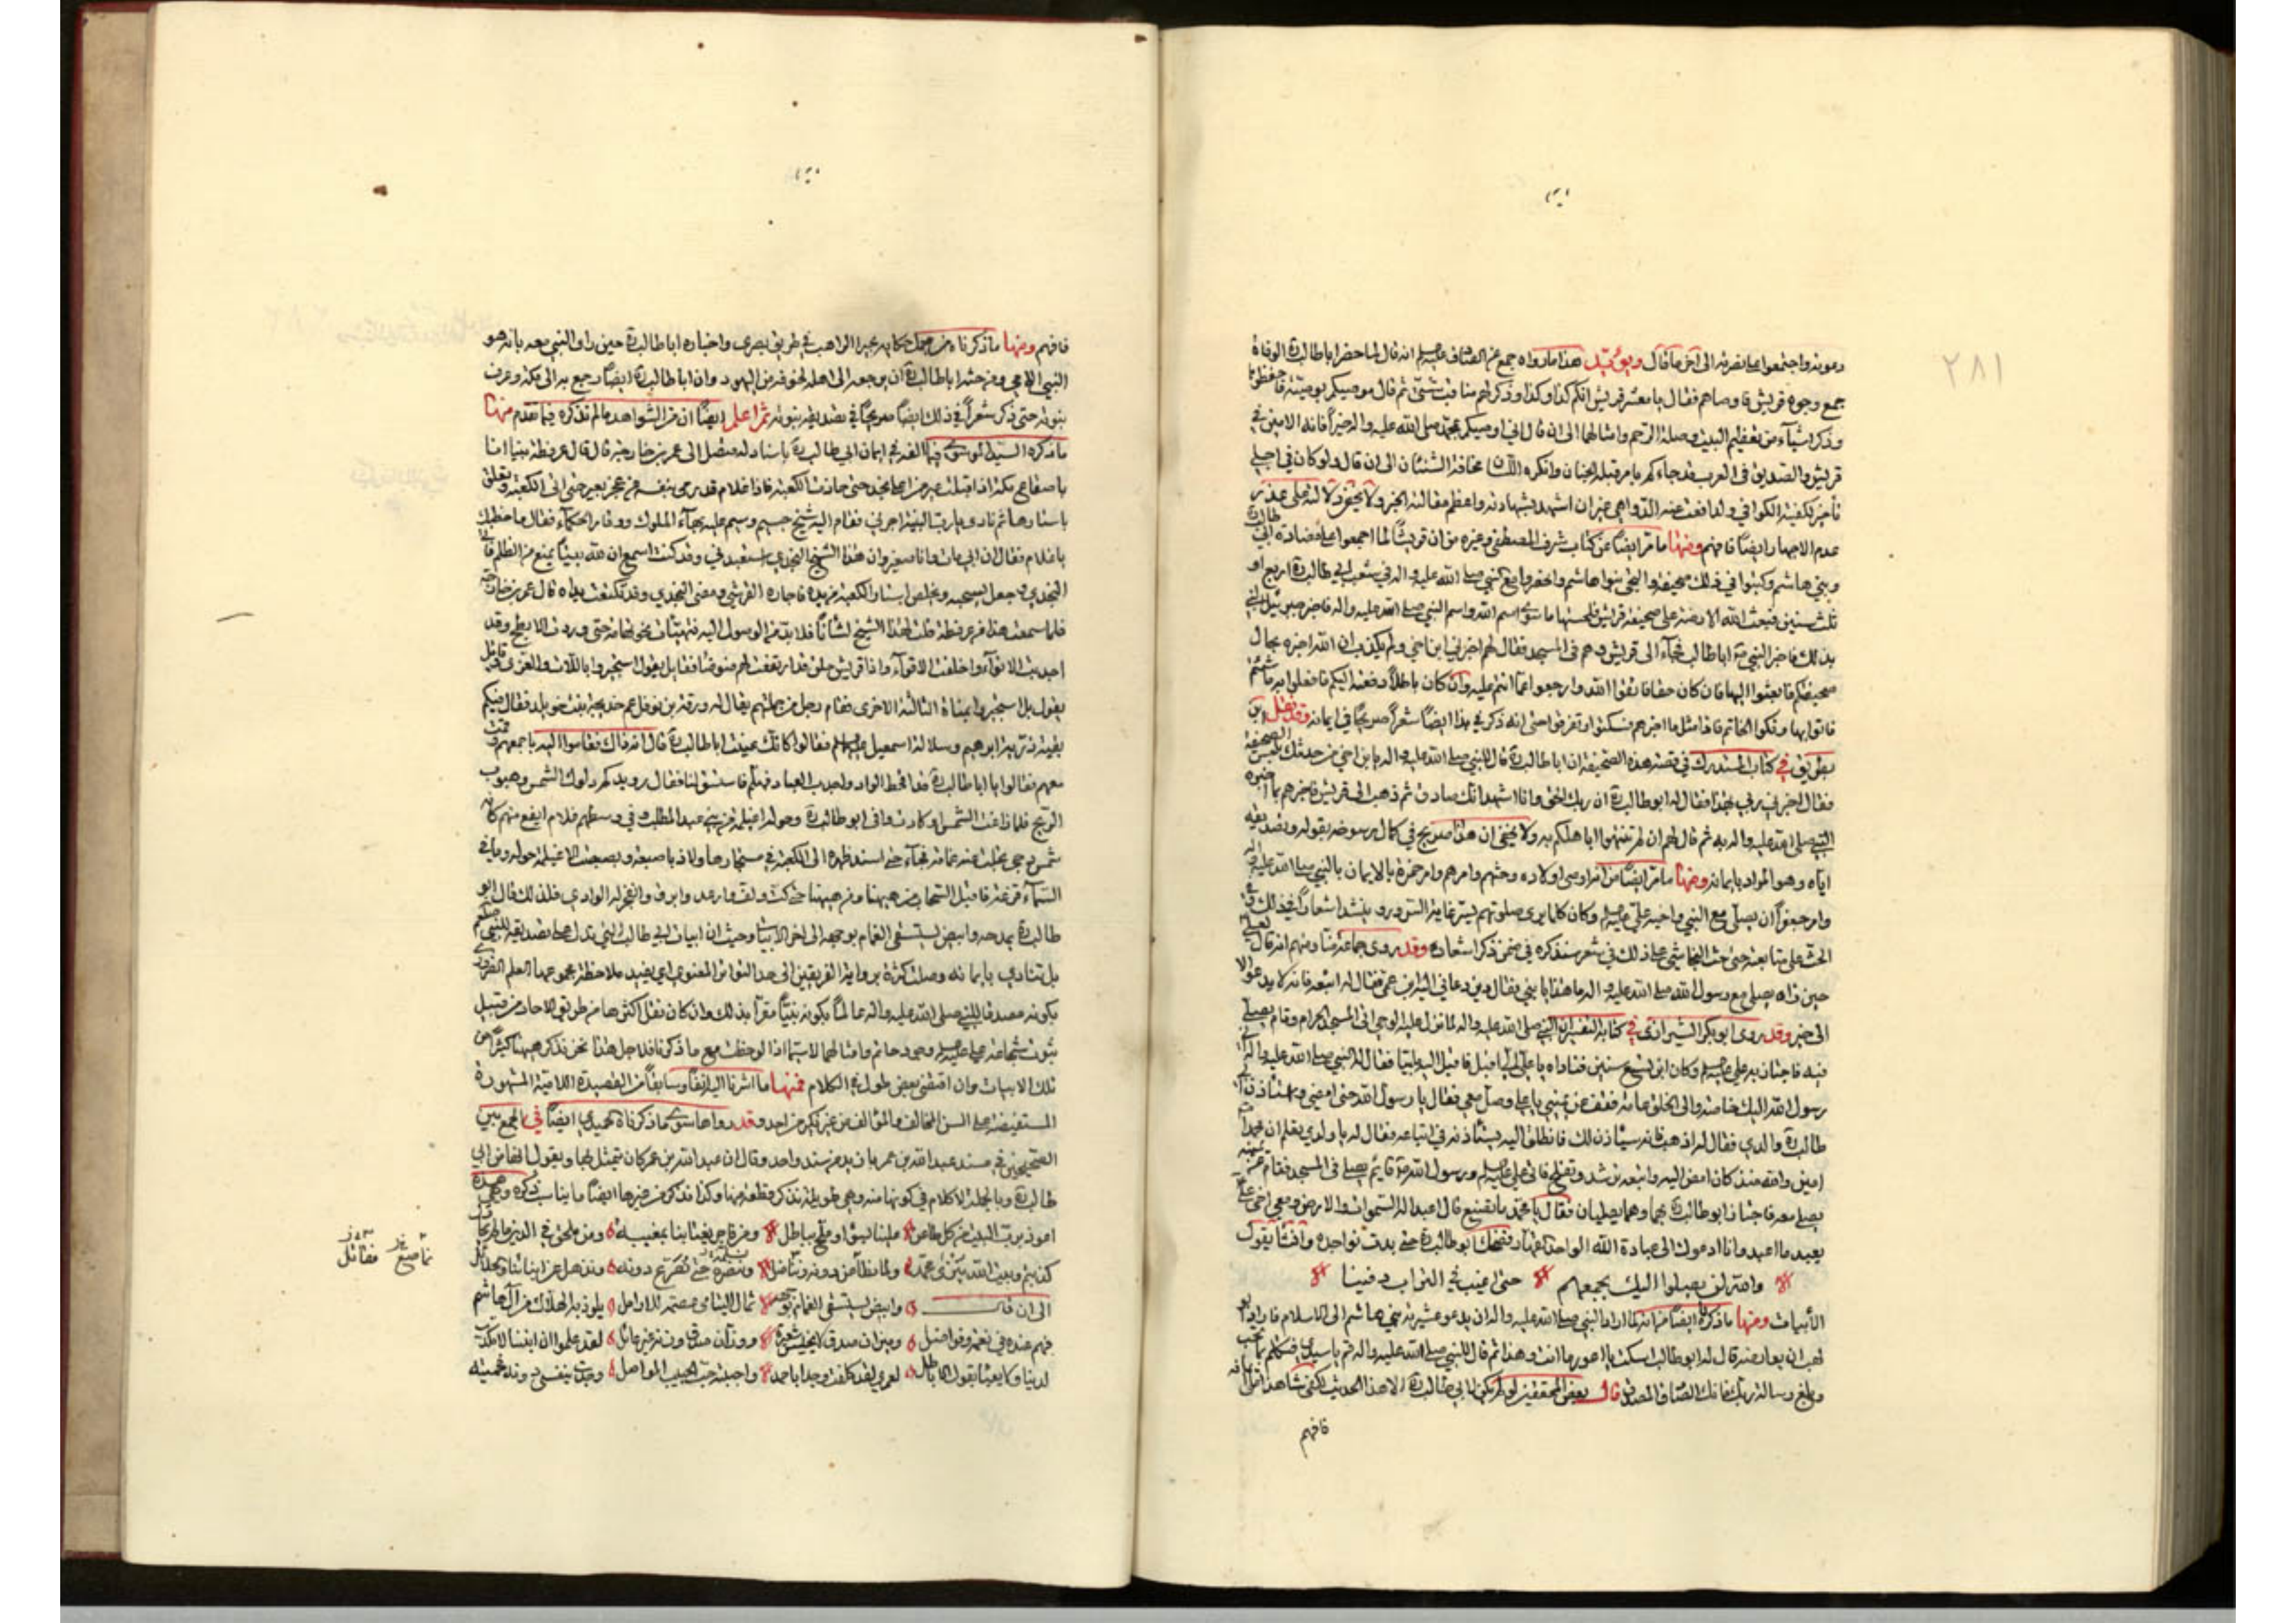 ٢٨١
دعوته واجتمعوا على نصرته الى آخر ما قال ويؤيد هذا ما رواه جمع عن الصادق عليه السلام انه قال لما حضر ابا طالب الوفاة
جمع وجوه قريش فاوصاهم فقال يا معشر قريش انكم كذا وكذا وذكر لهم مناقب شتى ثم قال موصيكم بوصية فاحفظوا
وذكر اشياء من تعظيم البيت وصلة الرحم وامثالها الى ان قال اني اوصيكم بمحمد صلى الله عليه واله خيراً فانه الامين في
قريش والصديق في العرب قد جاءكم بامر قبله الجنان وانكره اللسان مخافة الشنئان الى ان قال ولو كان في اجلي
تأخير لكفيته الكوافي ولدافعت عنه الدواهي غير ان اشهد بشهادته واعظم مقالته الخبر ولا يخفى دلالته على عذر
عدم الاجهار ايضاً فافهم ومنها ما مر ايضاً عن كتاب شرف المصطفى وغيره من ان قريشاً لما اجمعوا على مضادة ابي طالب
وبني هاشم وكتبوا في ذلك صحيفة والتجى بنوا هاشم مع النبي صلى الله عليه واله في شعب ابي طالب اربع او
ثلث سنين فبعث الله الارضة على صحيفة قريش فلحستها ما سوى اسم الله واسم النبي صلى الله عليه واله فاخبر جبرئيل النبي
بذلك فاخبر النبي ابا طالب فجاء الى قريش وهم في المسجد فقال لهم اخبرني ابن اخي ولم يكذب ان الله اخبره بحال
صحيفتكم فابعثوا اليها فان كان حقا فاتقوا الله وارجعوا عما انتم عليه وان كان باطلاً دفعته اليكم فافعلوا به ما شئتم
فاتوا بها وفكوا الخاتم فاذا مثل ما اخبرهم فسكتوا وتفرقوا حتى انه ذكر في هذا ايضاً شعراً صريحاً في ايمانه وقد نقل ابن
بطريق في كتاب المستدرك في قصة هذه الصحيفة ان ابا طالب قال للنبي صلى الله عليه واله يا بن اخي من حدثك بهذا
فقال اخبرني ربي بهذا فقال له ابو طالب ان ربك لحق وانا اشهد انك صادق ثم ذهب الى قريش فاخبرهم بما اخبره
النبي صلى الله عليه واله به ثم قال لهم ان لم تنتهوا اياهلكم به ولا يخفى ان هذا صريح في كمال رسوخه بقوله وتصديقه
اياه وهو المراد بايمانه ومنها ما مر ايضاً من امره اولاده وحثهم وامرهم وامر حمزة بالايمان بالنبي صلى الله عليه واله
وامر جعفراً ان يصلى مع النبي واخيه علي عليه السلام وكان كلما يرى صلوتهم يسر غاية السرور وينشد اشعاراً في ذلك
الحث على متابعته حتى حث النجاشي على ذلك في شعر سنذكره في ضمن ذكر اشعاره وقد روى جماعة منا ومنهم انه قال لعلي
حين راه يصلي مع رسول الله صلى الله عليه واله ما هذا يا بني فقال دين دعاني اليه ابن عمي فقال له اتبعه فانه لا يدعو الا
الى خير وقد روى ابو بكر الشيرازي في كتابه التفسير ان النبي صلى الله عليه واله لما نزل عليه الوحي اتى المسجد الحرام وقام يصلي
فيه فاجتاز به علي عليه السلام وكان ابن تسع سنين فناداه يا علي الي اقبل فاقبل اليه ملبيا فقال له النبي صلى الله عليه واله اني
رسول الله اليك خاصة والى الخلق عامة فقف عن يميني يا علي وصل معي فقال يا رسول الله حتى امضي واستاذن ابا
طالب والدي فقال له اذهب فانه سياذن لك فانطلق اليه يستأذنه في اتباعه فقال له يا ولدي تعلم ان محمداً
امين والله منذ كان امض اليه واتبعه ترشد وتفلح فاتى علي عليه السلام ورسول الله قائم يصلي في المسجد فقام عن يمينه
يصلي معه فاجتاز ابو طالب بهما وهما يصليان فقال يا محمد ما تصنع قال اعبد اله السموات والارض ومعي اخي علي
يعبد ما اعبد وانا ادعوك الى عبادة الله الواحد القهار فضحك ابو طالب حتى بدت نواجده وانشأ يقول
والله لن يصلوا اليك بجمعهم حتى اغيب في التراب دفينا
الأبيات ومنها ما ذكرناه ايضاً من انه لما اراد النبي صلى الله عليه واله ان يدعو عشيرته بني هاشم الى الاسلام فاراد ابو
لهب ان يعارضه قال له ابو طالب اسكت يا اعور ما انت وهذا ثم قال للنبي صلى الله عليه واله قم يا سيدي فتكلم بما تحب
وبلغ رسالة ربك فانك الصادق المصدق قال بعض المحققين لو لم يكن لابي طالب الا هذا الحديث لكفى شاهداً
فافهم
فافهم ومنها ما ذكرناه من جملة حكاية بحيرا الراهب في طريق بصرى واخباره ابا طالب حين راى النبي معه بانه هو
النبي الامي وفي حثه ابا طالب ان يرجعه الى اهله لخوفه من اليهود وان ابا طالب ايضاً رجع به الى مكة وعرف
نبوته حتى ذكر شعراً في ذلك ايضاً صريحاً في تصديقه بنبوته ثم اعلم ايضاً ان من الشواهد ما لم نذكره فيما تقدم منها
ما ذكره السيد الموسوي فيما الفه في ايمان ابي طالب باسناد له متصل الى عمرو بن خارجة قال قال عرفطة بينا انا
باصفاح مكة اذ اقبلت عير من اعلى نجد حتى حاذت الكعبة فاذا غلام قد رمى بنفسه عن عجز بعير حتى اتى الكعبة وتعلق
باستارها ثم نادى يا رب البنية اجرني فقام اليه شيخ جسيم وسيم عليه بهاء الملوك ووقار الحكماء فقال ما خطبك
يا غلام فقال ان ابي مات وانا صغير وان هذا الشيخ النجدي استعبدني وقد كنت اسمع ان لله بيتاً يمنع من الظلم فاتى
النجدي وجعل يسحبه ويخلص استار الكعبة من يده فاجاره القرشي ومضى النجدي وقد تكنعت يداه قال عمرو بن خارجة
فلما سمعت هذا من عرفطة قلت ان لهذا الشيخ لشاناً
احدبت الانواء واخلفت الاقواء واذا قريش حلق قد ارتفعت لهم ضوضاء فقائل يقول استجيروا باللات والعزى وقائل
يقول بل استجيروا بمناة الثالثة الاخرى فقام رجل من جملتهم يقال له ورقة بن نوفل عم خديجة بنت خويلد فقال فيكم
بقية ذرية ابراهيم وسلالة اسمعيل عليهما السلام فقالوا كانك عنيت ابا طالب قال انه ذاك فقاموا اليه باجمعهم وقمت
معهم فقالوا يا ابا طالب قد اقحط الواد واجدب العباد فهلم فاستسق لنا فقال رويدكم دلوك الشمس وهبوب
الريح فلما زاغت الشمس او كادت وافى ابو طالب وحوله اغيلمة من بني عبد المطلب وفي وسطهم غلام ايفع منهم كانه
شمس دجى تجلت عنه غمامة فجاء حتى اسند ظهره الى الكعبة في مستجارها ولاذ باصبعه وبصبصت الاغيلمة حوله وما في
السماء قزعة فاقبل السحاب من هيهنا ومن هيهنا حتى كث ولف وارعد وابرق وانفجر له الوادي فلذلك قال ابو
طالب يمدحه وابيض يستسقى الغمام بوجهه الى اخر الابيات وحيث ان ابيات ابي طالب التي تدل على تصديقه للنبي
بل تنادي بايمانه وصلت كثرة برواية الفريقين الى حد التواتر المعنوي اي يفيد ملاحظة مجموعها العلم الضروري
بكونه مصدقا للنبي صلى الله عليه واله عالماً بكونه نبياً مقراً بذلك وان كان نقل اكثرها من طريق الاحاد من قبيل
ثبوت شجاعة علي عليه السلام وجود حاتم وامثالهما لا سيما اذا لوحظت مع ما ذكرنا فلاجل هذا نحن نذكر هيهنا كثيراً من
تلك الابيات وان اقتضى بعض طول في الكلام فمنها ما اشرنا اليه انفاً وسابقاً من القصيدة اللامية المشهورة
المستفيضة على السن المخالف والمؤالف من غير نكير من احد وقد رواها سوى ما ذكرناه الحميدي ايضاً في الجمع بين
الصحيحين في مسند عبد الله بن عمر بازيد من سند واحد وقال ان عبد الله بن عمر كان يتمثل بها ويقول انها من ابي
طالب وبالجملة لا كلام في كونها منه وهي طويلة نذكر قطعة منها وكذا نذكر من غيرها ايضاً ما يناسب ذكره وهي هذه
اعوذ برب البيت من كل طاعن علينا بسوء او ملح بباطل ومن فاجر يغتابنا بمغيبة ومن ملحق في الدين ما لم نحاول
كذبتم وبيت الله يبزى محمد ولما نطاعن دونه ونناضل وننصره حتى نصرع دونه ونذهل عن ابنائنا والحلائل
الى ان قال وابيض يستسقى الغمام بوجهه ثمال اليتامى عصمة للارامل يلوذ به الهلاك من آل هاشم
فهم عنده في نعمة وفواضل وميزان صدق لا يخيس شعيرة ووزان صدق وزنه غير عائل لقد علموا ان ابننا لا مكذب
لدينا ولا يعبأ بقول الاباطل لعمري لقد كلفت وجداً باحمد واحببته حب الحبيب المواصل وجدت بنفسي دونه فحميته